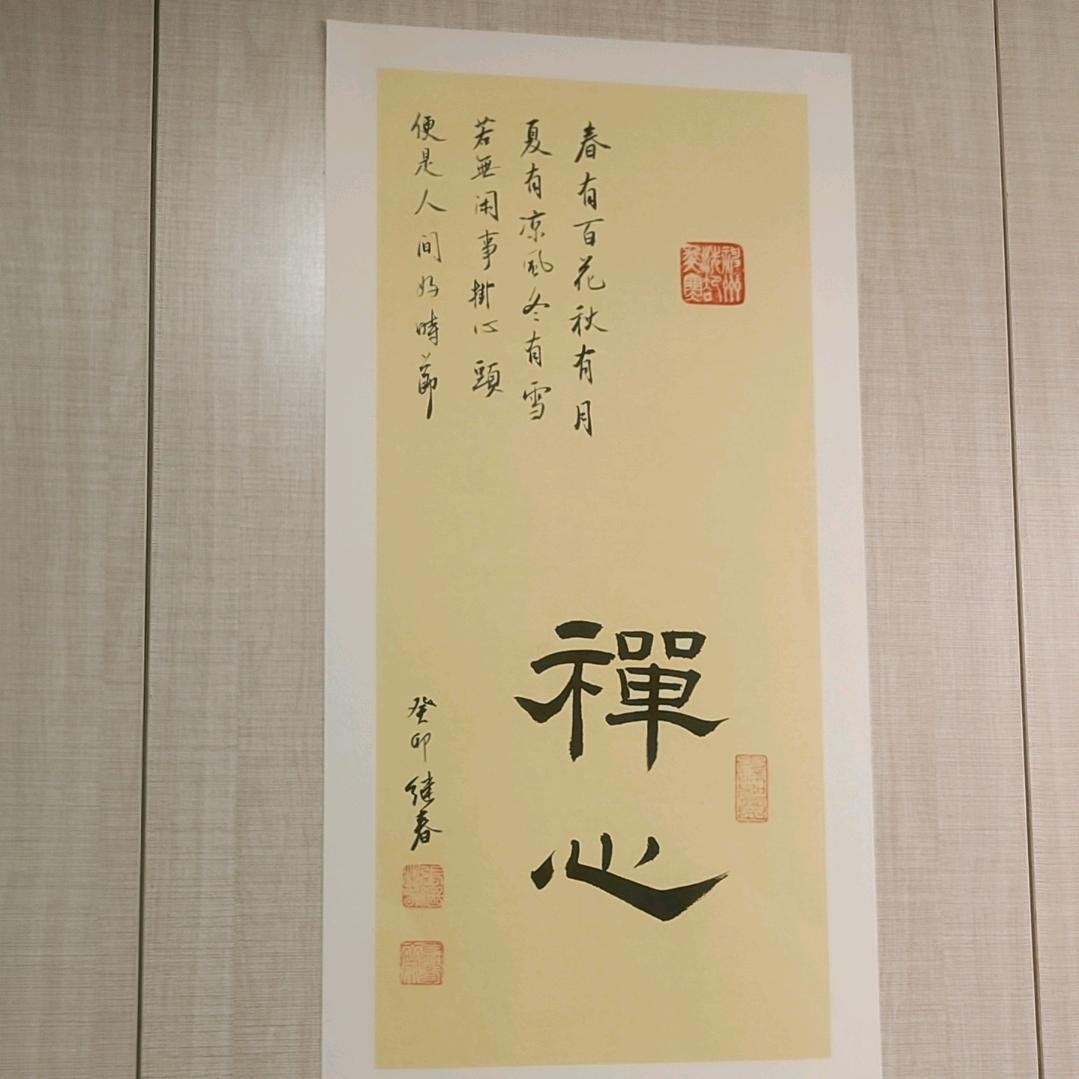 春有百花秋有月
夏有凉风冬有雪
若無闲事掛心頭
便是人间好時節
禪心
癸卯继春